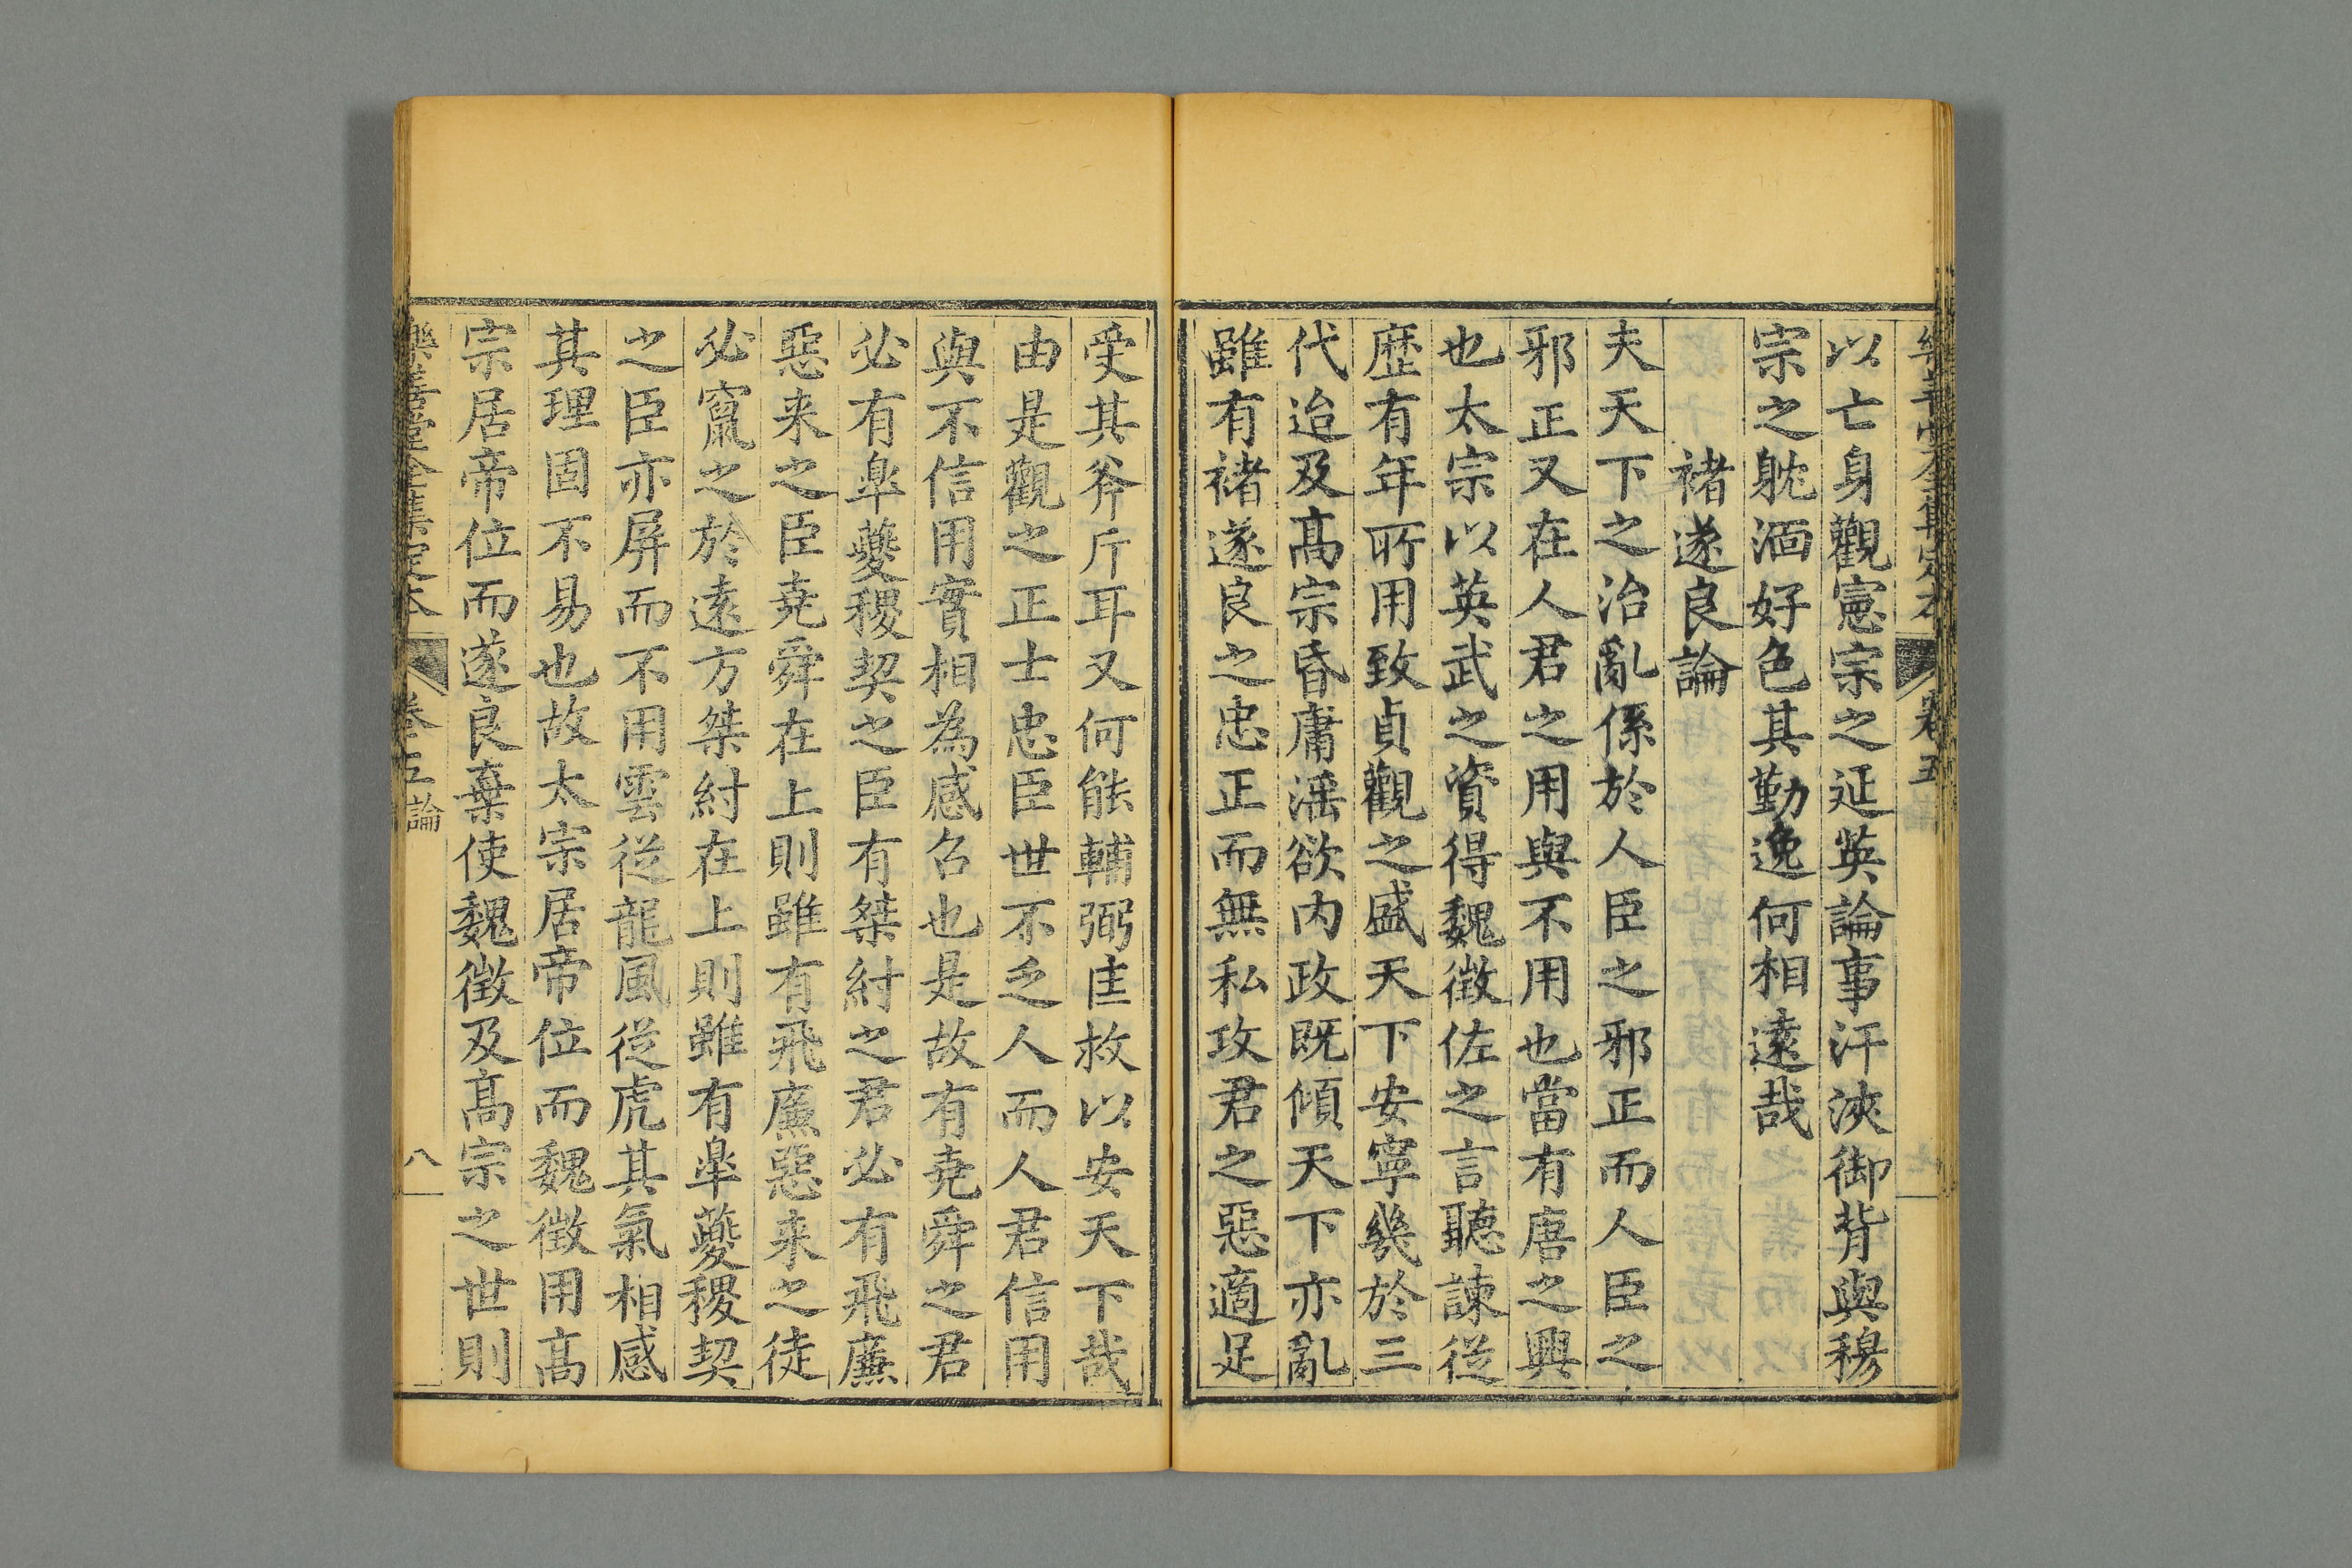 卷五
以亡身觀憲宗之延英論事汗浹御背與穆
宗之躭湎好色其勤逸何相遠哉
褚遂良論
夫天下之治亂係於人臣之邪正而人臣之
邪正又在人君之用與不用也當有唐之興
也太宗以英武之資得魏徵佐之言聽諫從
歴有年所用致貞觀之盛天下安寧幾於三
代迨及髙宗昏庸滛欲内政既傾天下亦亂
雖有褚遂良之忠正而無私攻君之惡適足
受其斧斤耳又何能輔弼匡救以安天下哉
由是觀之正士忠臣世不乏人而人君信用
與不信用實相為感召也是故有堯舜之君
必有臯夔稷契之臣有桀紂之君必有飛廉
惡来之臣堯舜在上則雖有飛廉惡来之徒
必竄之於逺方桀紂在上則雖有臯夔稷契
之臣亦屏而不用雲從龍風從虎其氣相感
其理固不易也故太宗居帝位而魏徵用髙
宗居帝位而遂良棄使魏徵及髙宗之世則
樂善堂全集定本
卷五論
八